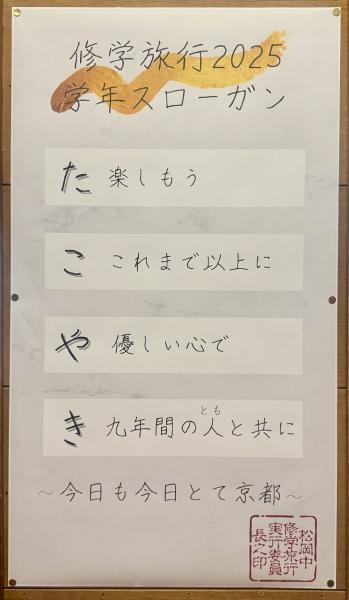 修学旅行2025
学年スローガン
た 楽しもう
こ これまで以上に
や 優しい心で
とも
き 九年間の人と共に
～今日も今日とて京都～
松岡中
修学旅行
実行委員
長之印